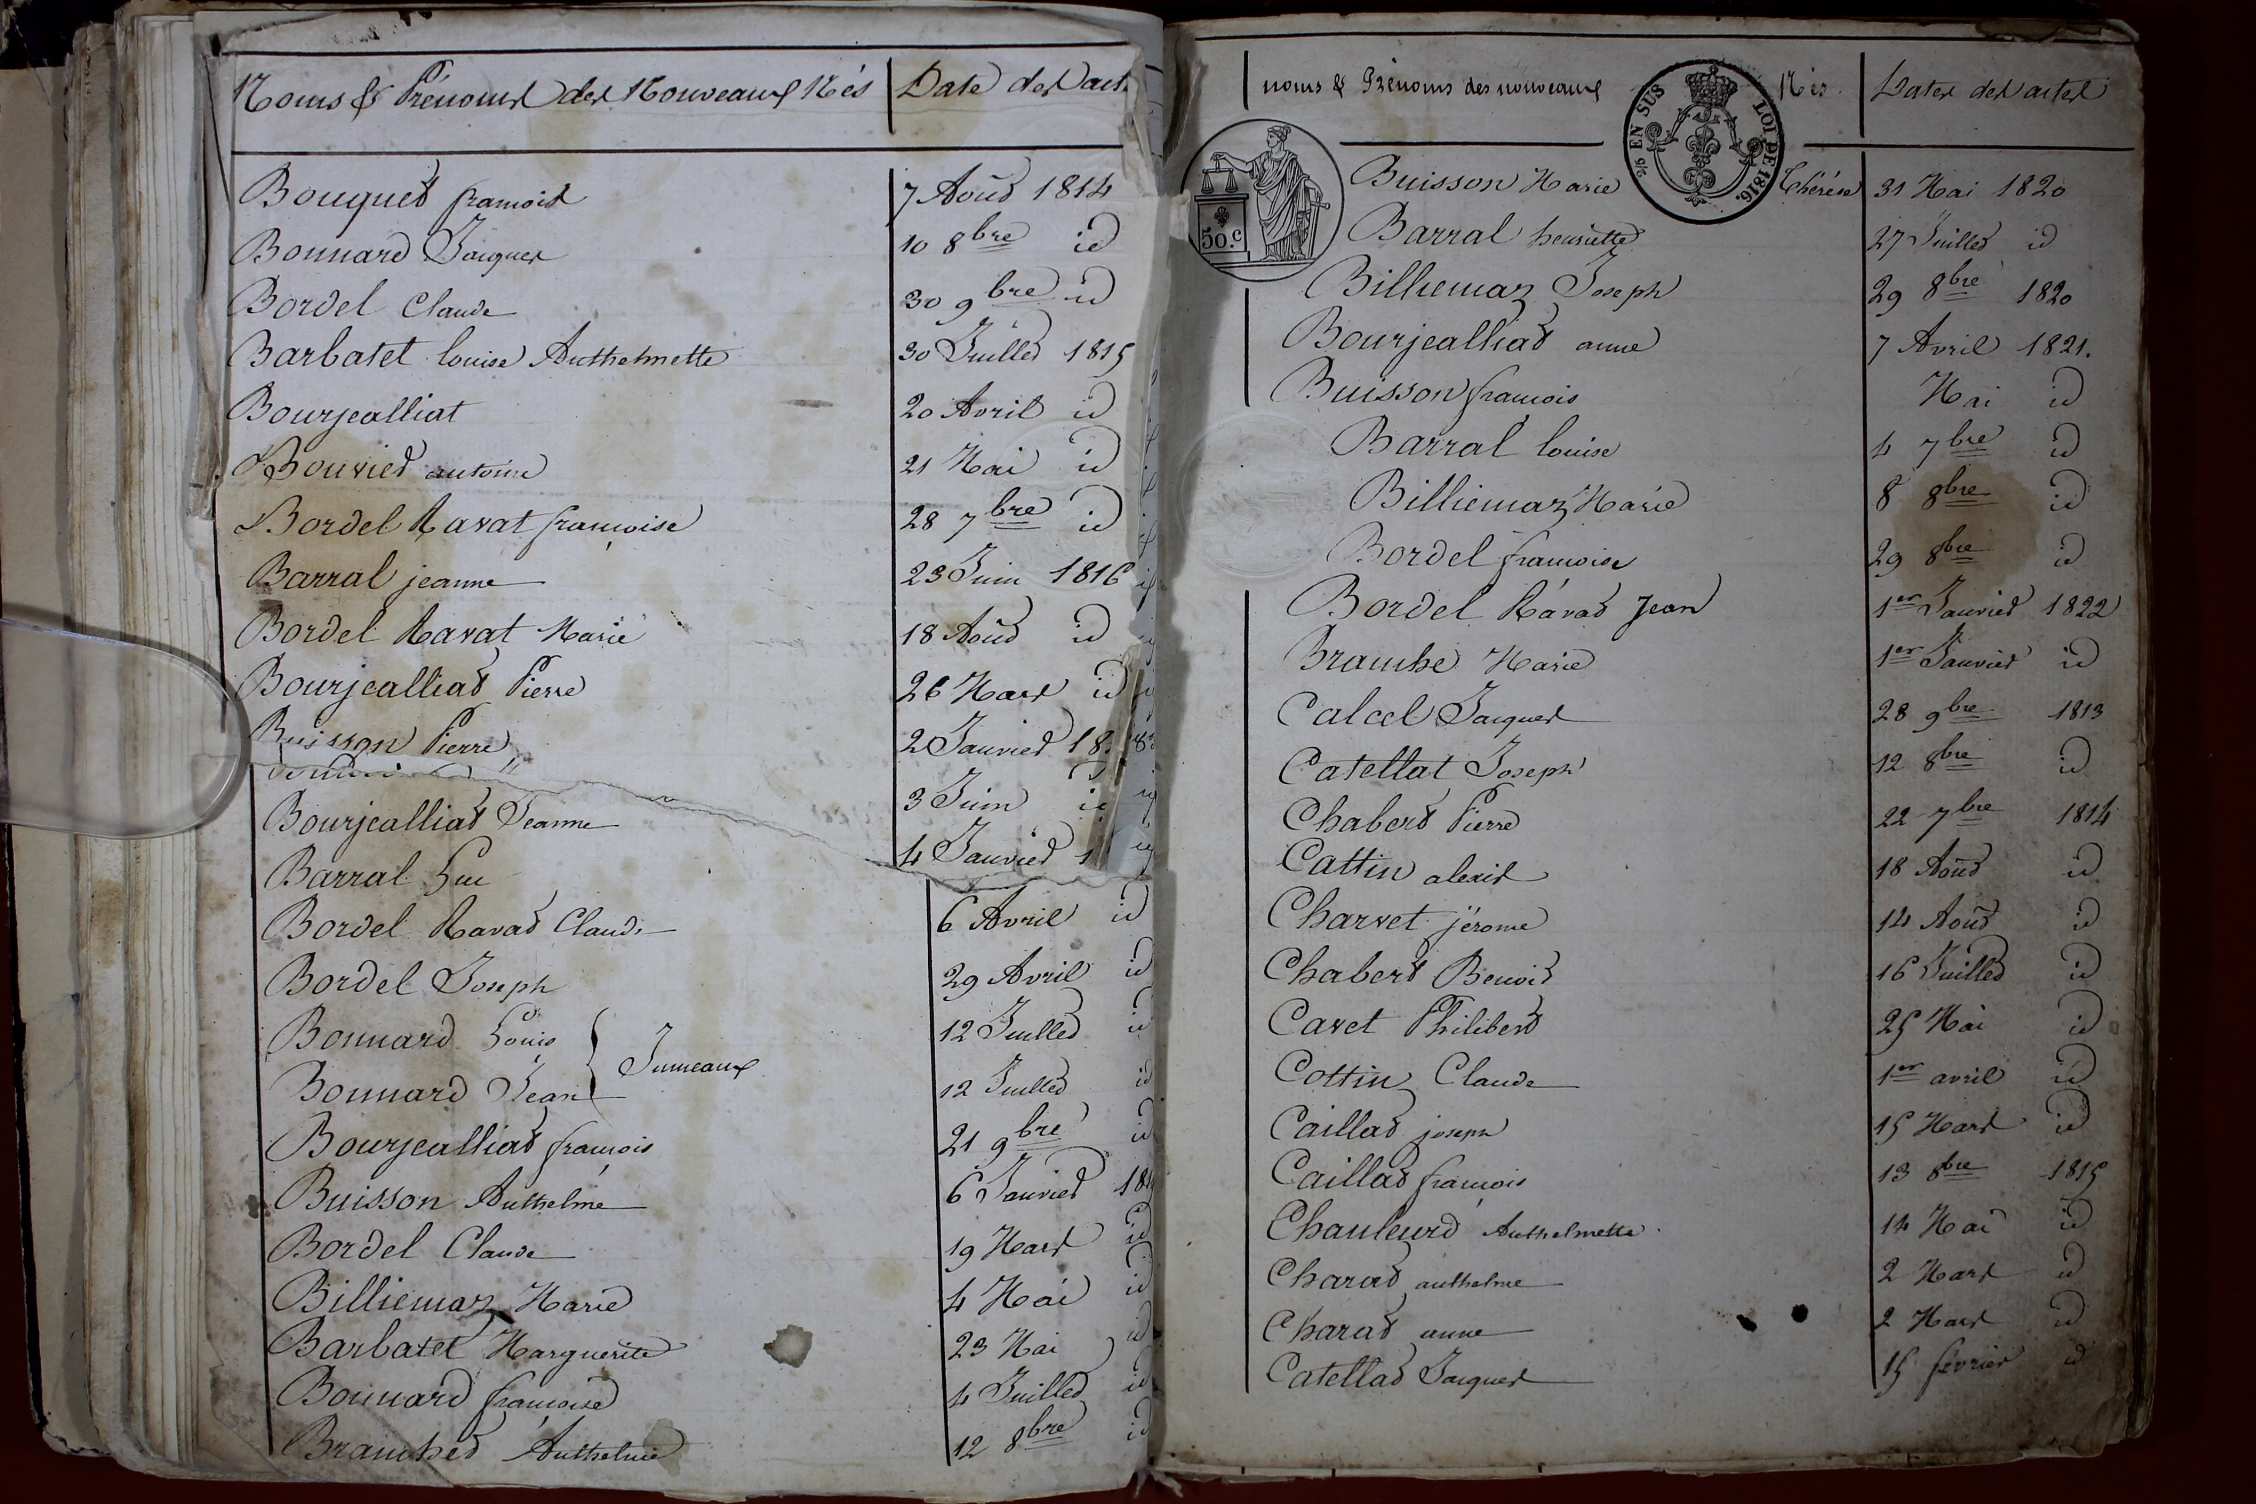 Noms & Prénoms des Nouveaux Nés Date des act
Bouquet francois 7 Août 1814
Bonnard Jacques 10 8bre id
Bordel Claude 30 9bre id
Barbatet louise Anthelmette 30 Juillet 1815
Bourjealliat 20 Avril id
Bouvier antoine 21 Mai id
Bordel Ravat françoise 28 7bre id
Barral jeanne 23 Juin 1816
Bordel Ravat Marie 18 Août id
Bourjealliat Pierre 26 Mars id
Buisson Pierre 2 Janvier 18
Bourjealliat Jeanne 3 Juin id
Barral Luc 4 Janvier 1
Bordel Ravat Claude 6 Avril id
Bordel Joseph 29 Avril id
Bonnard Louis 12 Juillet id
Jumeaux
Bonnard Jean 12 Juillet id
Bourjealliat françois 21 9bre id
Buisson Anthelme 6 Janvier 181
Bordel Claude 19 Mars id
Billiemaz Marie 4 Mai id
Barbatet Marguerite 23 Mai id
Bonnard françoise 4 Juillet id
Branched Anthelme 12 8bre id
noms & Prénoms des nouveaux Nés Dates des actes
EN SUS LOI DE 1816.
50.c
Buisson Marie Thérése 31 Mai 1820
Barral henriette 27 Juillet id
Billiemaz Joseph 29 8bre 1820
Bourjealliat anne 7 Avril 1821.
Buisson francois Mai id
Barral louise 4 7bre id
Billiemaz Marie 8 8bre id
Bordel francoise 29 8bre id
Bordel Ravat Jean 1er Janvier 1822
Branche Marie 1er Janvier id
Calcel Jacques 28 9bre 1813
Catellat Joseph 12 8bre id
Chabert Pierre 22 7bre 1814
Cattin alexis 18 Août id
Charvet jérome 14 Août id
Chabert Benoit 16 Juillet id
Cavet Philibert 25 Mai id
Cottin Claude 1er avril id
Caillat joseph 15 Mars id
Caillat françois 13 8bre 1815
Chanleurd Anthelmette 14 Mai id
Charat anthelme 2 Mars id
Charat anne 2 Mars id
Catellat Jacques 15 février id